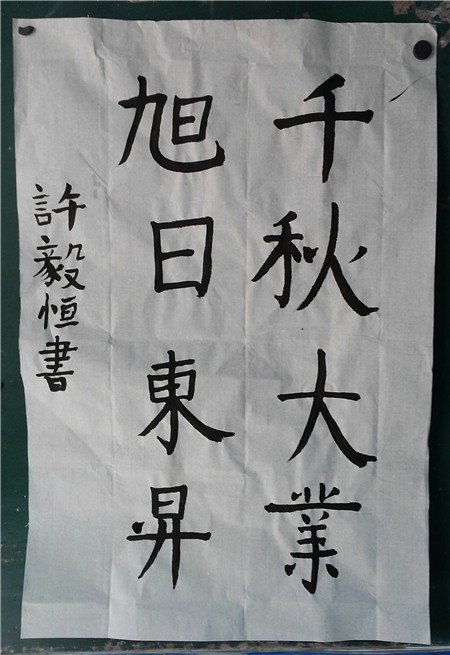 千秋大業
旭日東昇
許毅恒書